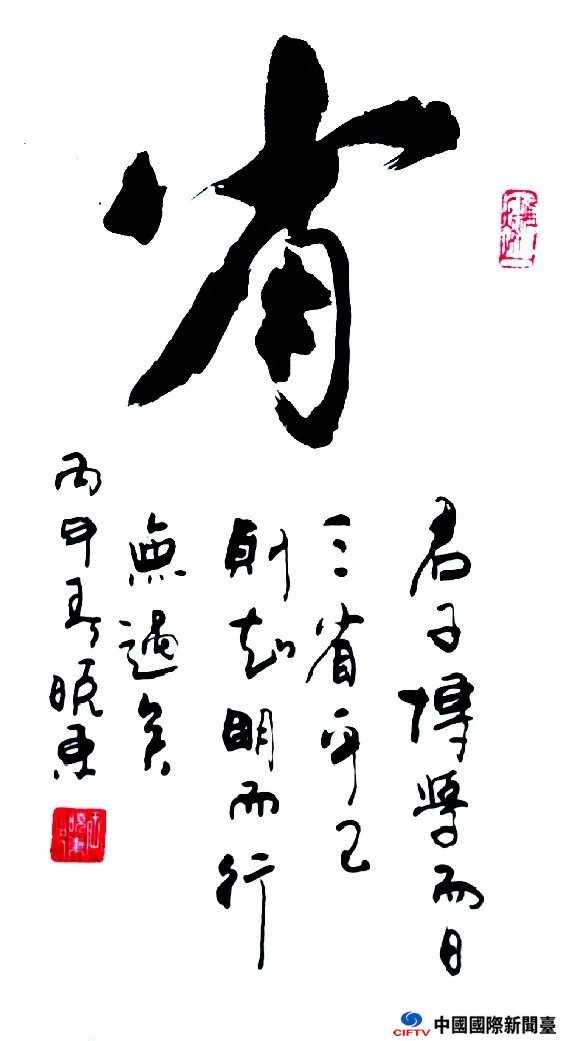 省
君子博學而日
三省乎己
則知明而行
無過矣
丙申春曉東
CIFTV 中國國際新聞臺